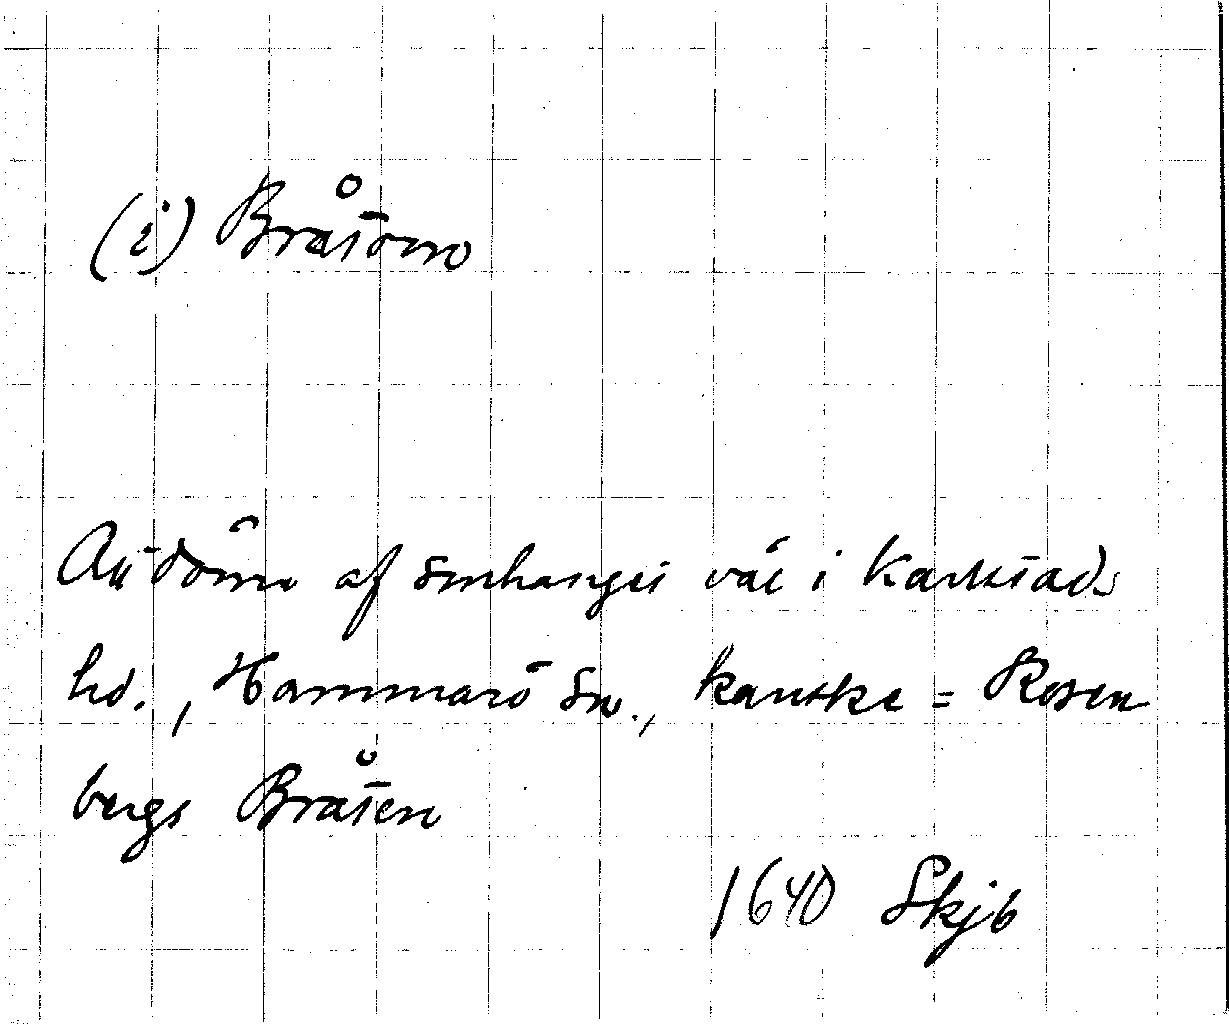 (i) Bråtom
Att döma af smhanget väl i Karlstads
hd., Hammarö sn., kanske = Rosen
bergs Bråten
1640 Skjb